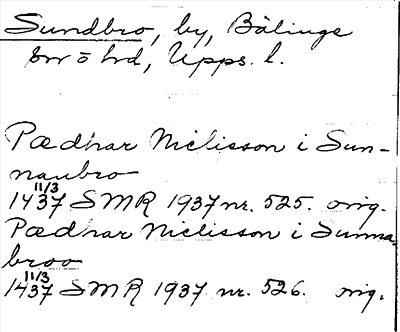 Sundbro, by, Bälinge
sn o hd, Upps. l.
Pædhar Niclisson i Sun-
naubro
11/3
1437 SMR 1937 nr. 525. orig.
Pædhar Niclisson i Sunna
broo
11/3
1437 SMR 1937 nr. 526. orig.